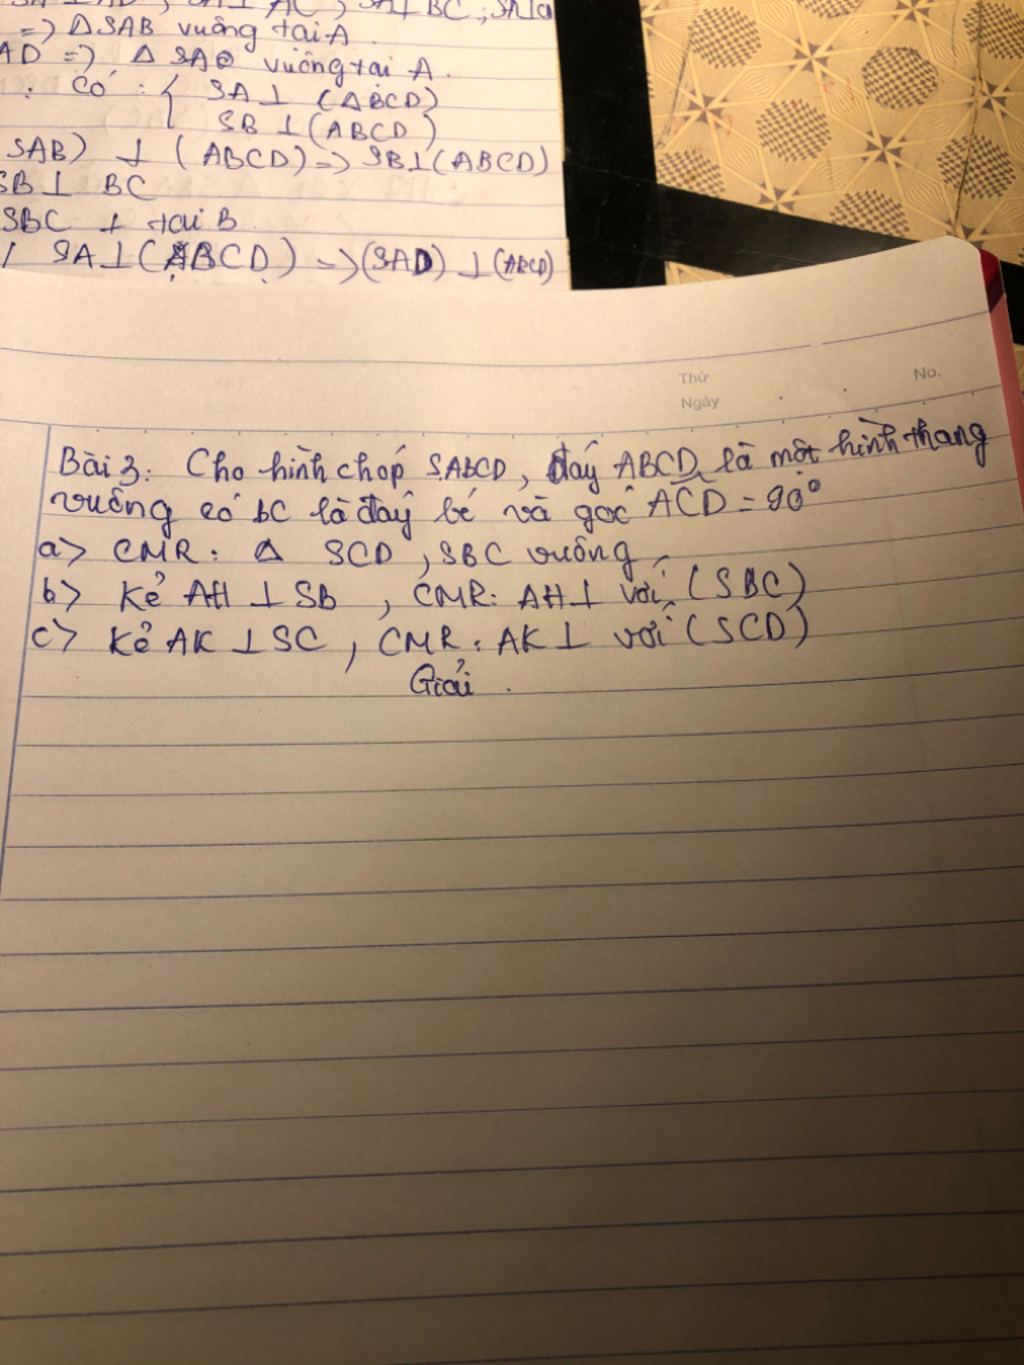 => ΔSAB vuông tại A
AD => Δ SAD vuông tại A.
: có : { SA ⊥ (ABCD)
SB ⊥ (ABCD)
SAB) ⊥ (ABCD) => SB ⊥ (ABCD)
SB ⊥ BC
SBC ⊥ tại B
SA ⊥ (ABCD) => (SAD) ⊥ (ABCD)
Thứ
Ngày
No.
Bài 3: Cho hình chóp S.ABCD, đáy ABCD là một hình thang
vuông có bC là đáy bé và góc ACD = 90°
a> CMR: Δ SCD, SBC vuông
b> Kẻ AH ⊥ SB, CMR: AH ⊥ với (SBC)
c> Kẻ AK ⊥ SC, CMR: AK ⊥ với (SCD)
Giải.